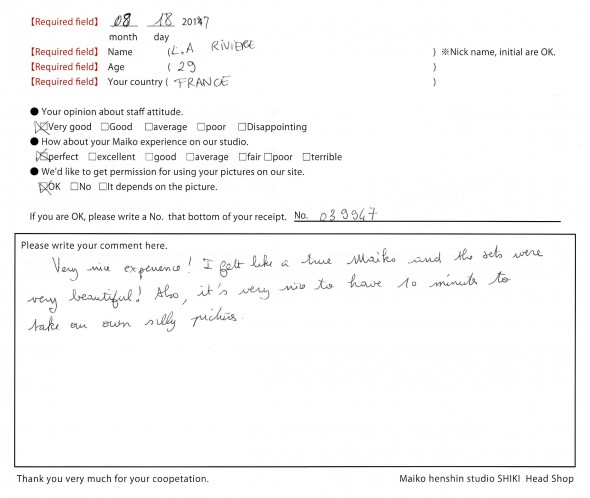 【Required field】 08 18 2017
month day
【Required field】 Name (L.A RIVIERE ) ※Nick name, initial are OK.
【Required field】 Age ( 29 )
【Required field】 Your country ( FRANCE )
● Your opinion about staff attitude.
☒Very good □Good □average □poor □Disappointing
● How about your Maiko experience on our studio.
☒perfect □excellent □good □average □fair □poor □terrible
● We'd like to get permission for using your pictures on our site.
☒OK □No □It depends on the picture.
If you are OK, please write a No. that bottom of your receipt. No. 039947
Please write your comment here.
Very nice experience! I felt like a true Maiko and the sets were
very beautiful! Also, it's very nice to have 10 minutes to
take our own silly pictures.
Thank you very much for your coopetation. Maiko henshin studio SHIKI Head Shop